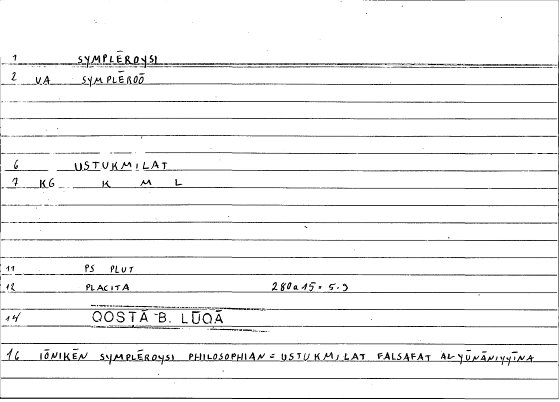 1 SYMPLĒROYSI
2 VA SYMPLĒROŌ
6 USTUKMILAT
7 KG K M L
11 PS PLUT
12 PLACITA 280a15 = 5.9
14 QOSTĀ B. LŪQĀ
16 IŌNIKĒN SYMPLĒROYSI PHILOSOPHIAN = USTUKMILAT FALSAFAT AL-YŪNĀNIYYĪNA